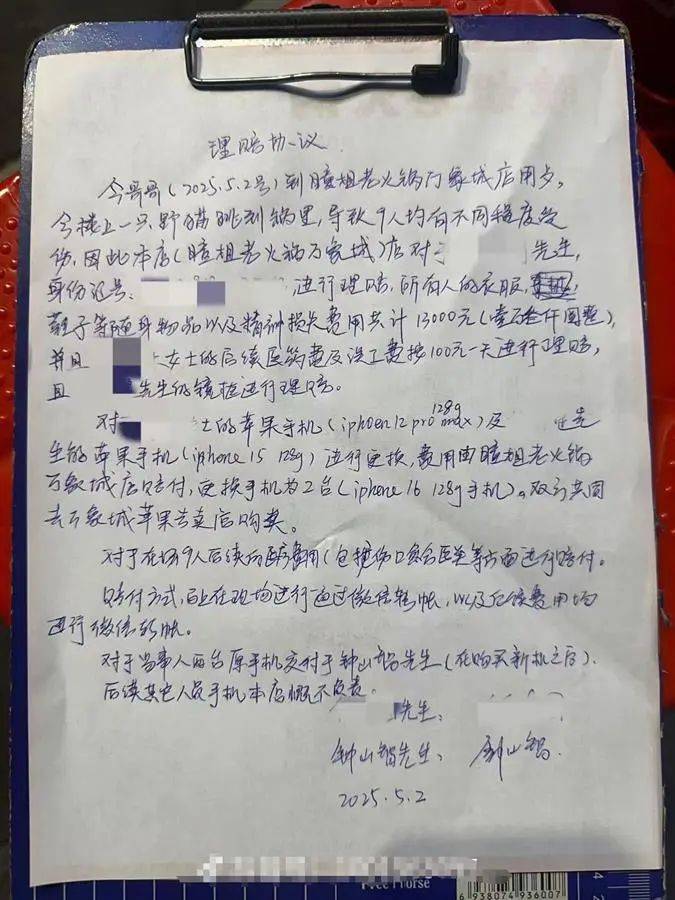 理赔协议
今哥哥(2025.5.2号)到瞳姐老火锅万象城店用歺,
今楼上一只野猫跳到锅里,导致9人均有不同程度受
伤,因此本店(瞳姐老火锅万象城)店对于 先生,
身份证号: 进行理赔,所有人的衣服,
鞋子等随身物品以及精神损失费用共计13000元(壹万叁仟圆整),
并且 女士的后续医药费及误工费按100元一天进行理赔,
且 先生的镜框进行理赔。
对 士的苹果手机(iphoen 12 pro max 128g)及 先
生的苹果手机(iphone 15 128g)进行更换,费用由瞳姐老火锅
万象城店赔付,更换手机为2台(iphone 16 128g手机)。双方共同
去万象城苹果专卖店购买。
对于在场9人后续后 费用(包括伤口愈合医美等方面进行赔付。
赔付方式,由在现场进行通过微信转帐,以及后续费用均
进行微信转帐。
对于当事人两台原手机交付于钟山智先生(在购买新机之后).
后续其它人员手机本店概不负责。
先生:
钟山智先生: 钟山智.
2025.5.2
Free Horse
6 938074 936007